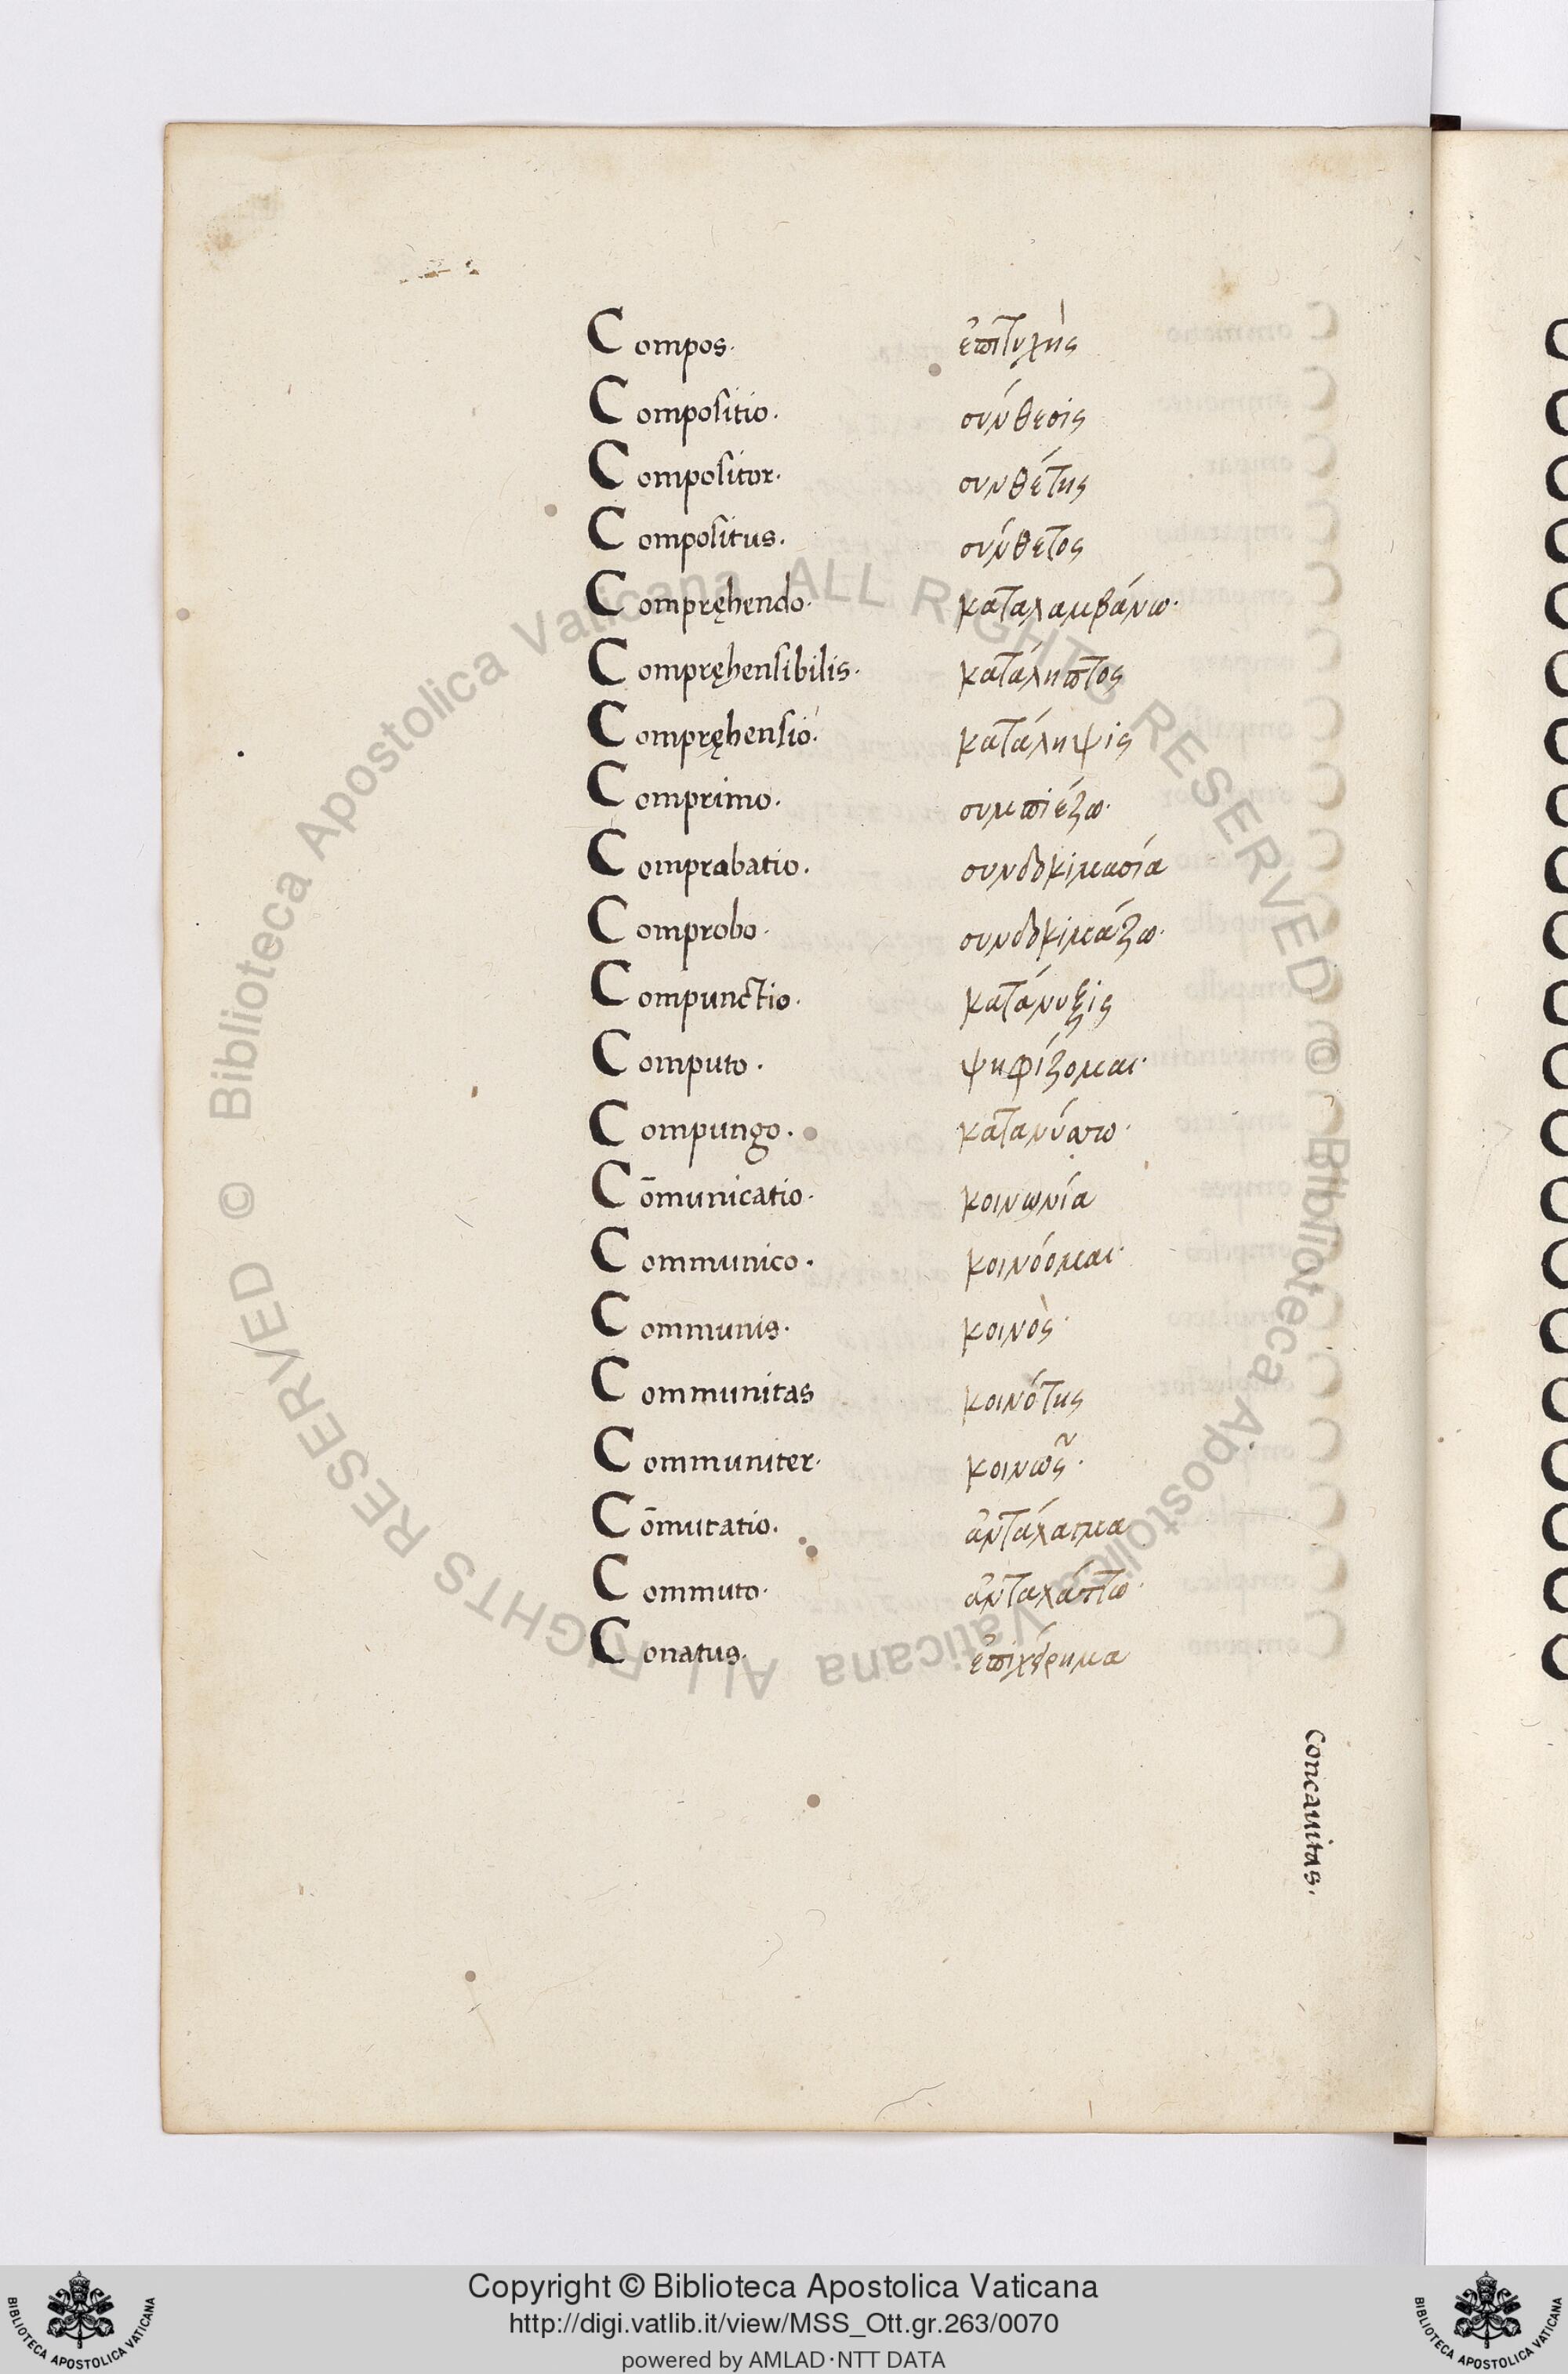 Compos. ἐπιτυχὴς
Compositio. σύνθεσις
Compositor. συνθέτης
Compositus. σύνθετος
Compręhendo. καταλαμβάνω.
Compręhensibilis. κατάληπτος
Compręhensio. κατάληψις
Comprimo. συμπιέζω.
Comprabatio. συνδοκιμασία
Comprobo. συνδοκιμάζω.
Compunctio. κατάνυξις
Computo. ψηφίζομαι.
Compungo. κατανύσσω.
Cōmunicatio. κοινωνία
Communico. κοινόομαι.
Communis. κοινὸς.
Communitas κοινότης
Communiter. κοινῶς.
Cōmutatio.
Commuto.
Conatus. ἐπιχείρημα
Concauitas.
Copyright © Biblioteca Apostolica Vaticana
http://digi.vatlib.it/view/MSS_Ott.gr.263/0070
powered by AMLAD·NTT DATA
BIBLIOTECA APOSTOLICA VATICANA
BIBLIOTECA APOSTOLICA VATICANA
© Biblioteca Apostolica Vaticana ALL RIGHTS RESERVED
© Biblioteca Apostolica Vaticana ALL RIGHTS RESERVED